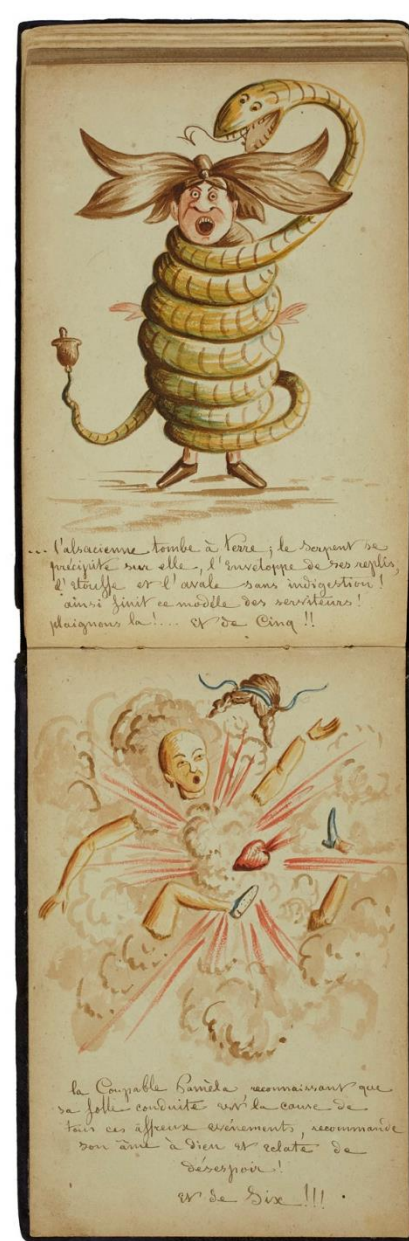 ... l'alsacienne tombe à terre ; le serpent se
précipite sur elle, l'enveloppe de ses replis,
l'étouffe et l'avale sans indigestion !
ainsi finit ce modèle des serviteurs !
plaignons la !... et de Cinq !!
la Coupable Paméla reconnaissant que
sa folle conduite est la cause de
tous ces affreux événements, recommande
son âme à dieu et éclate de
désespoir !
et de Six !!!